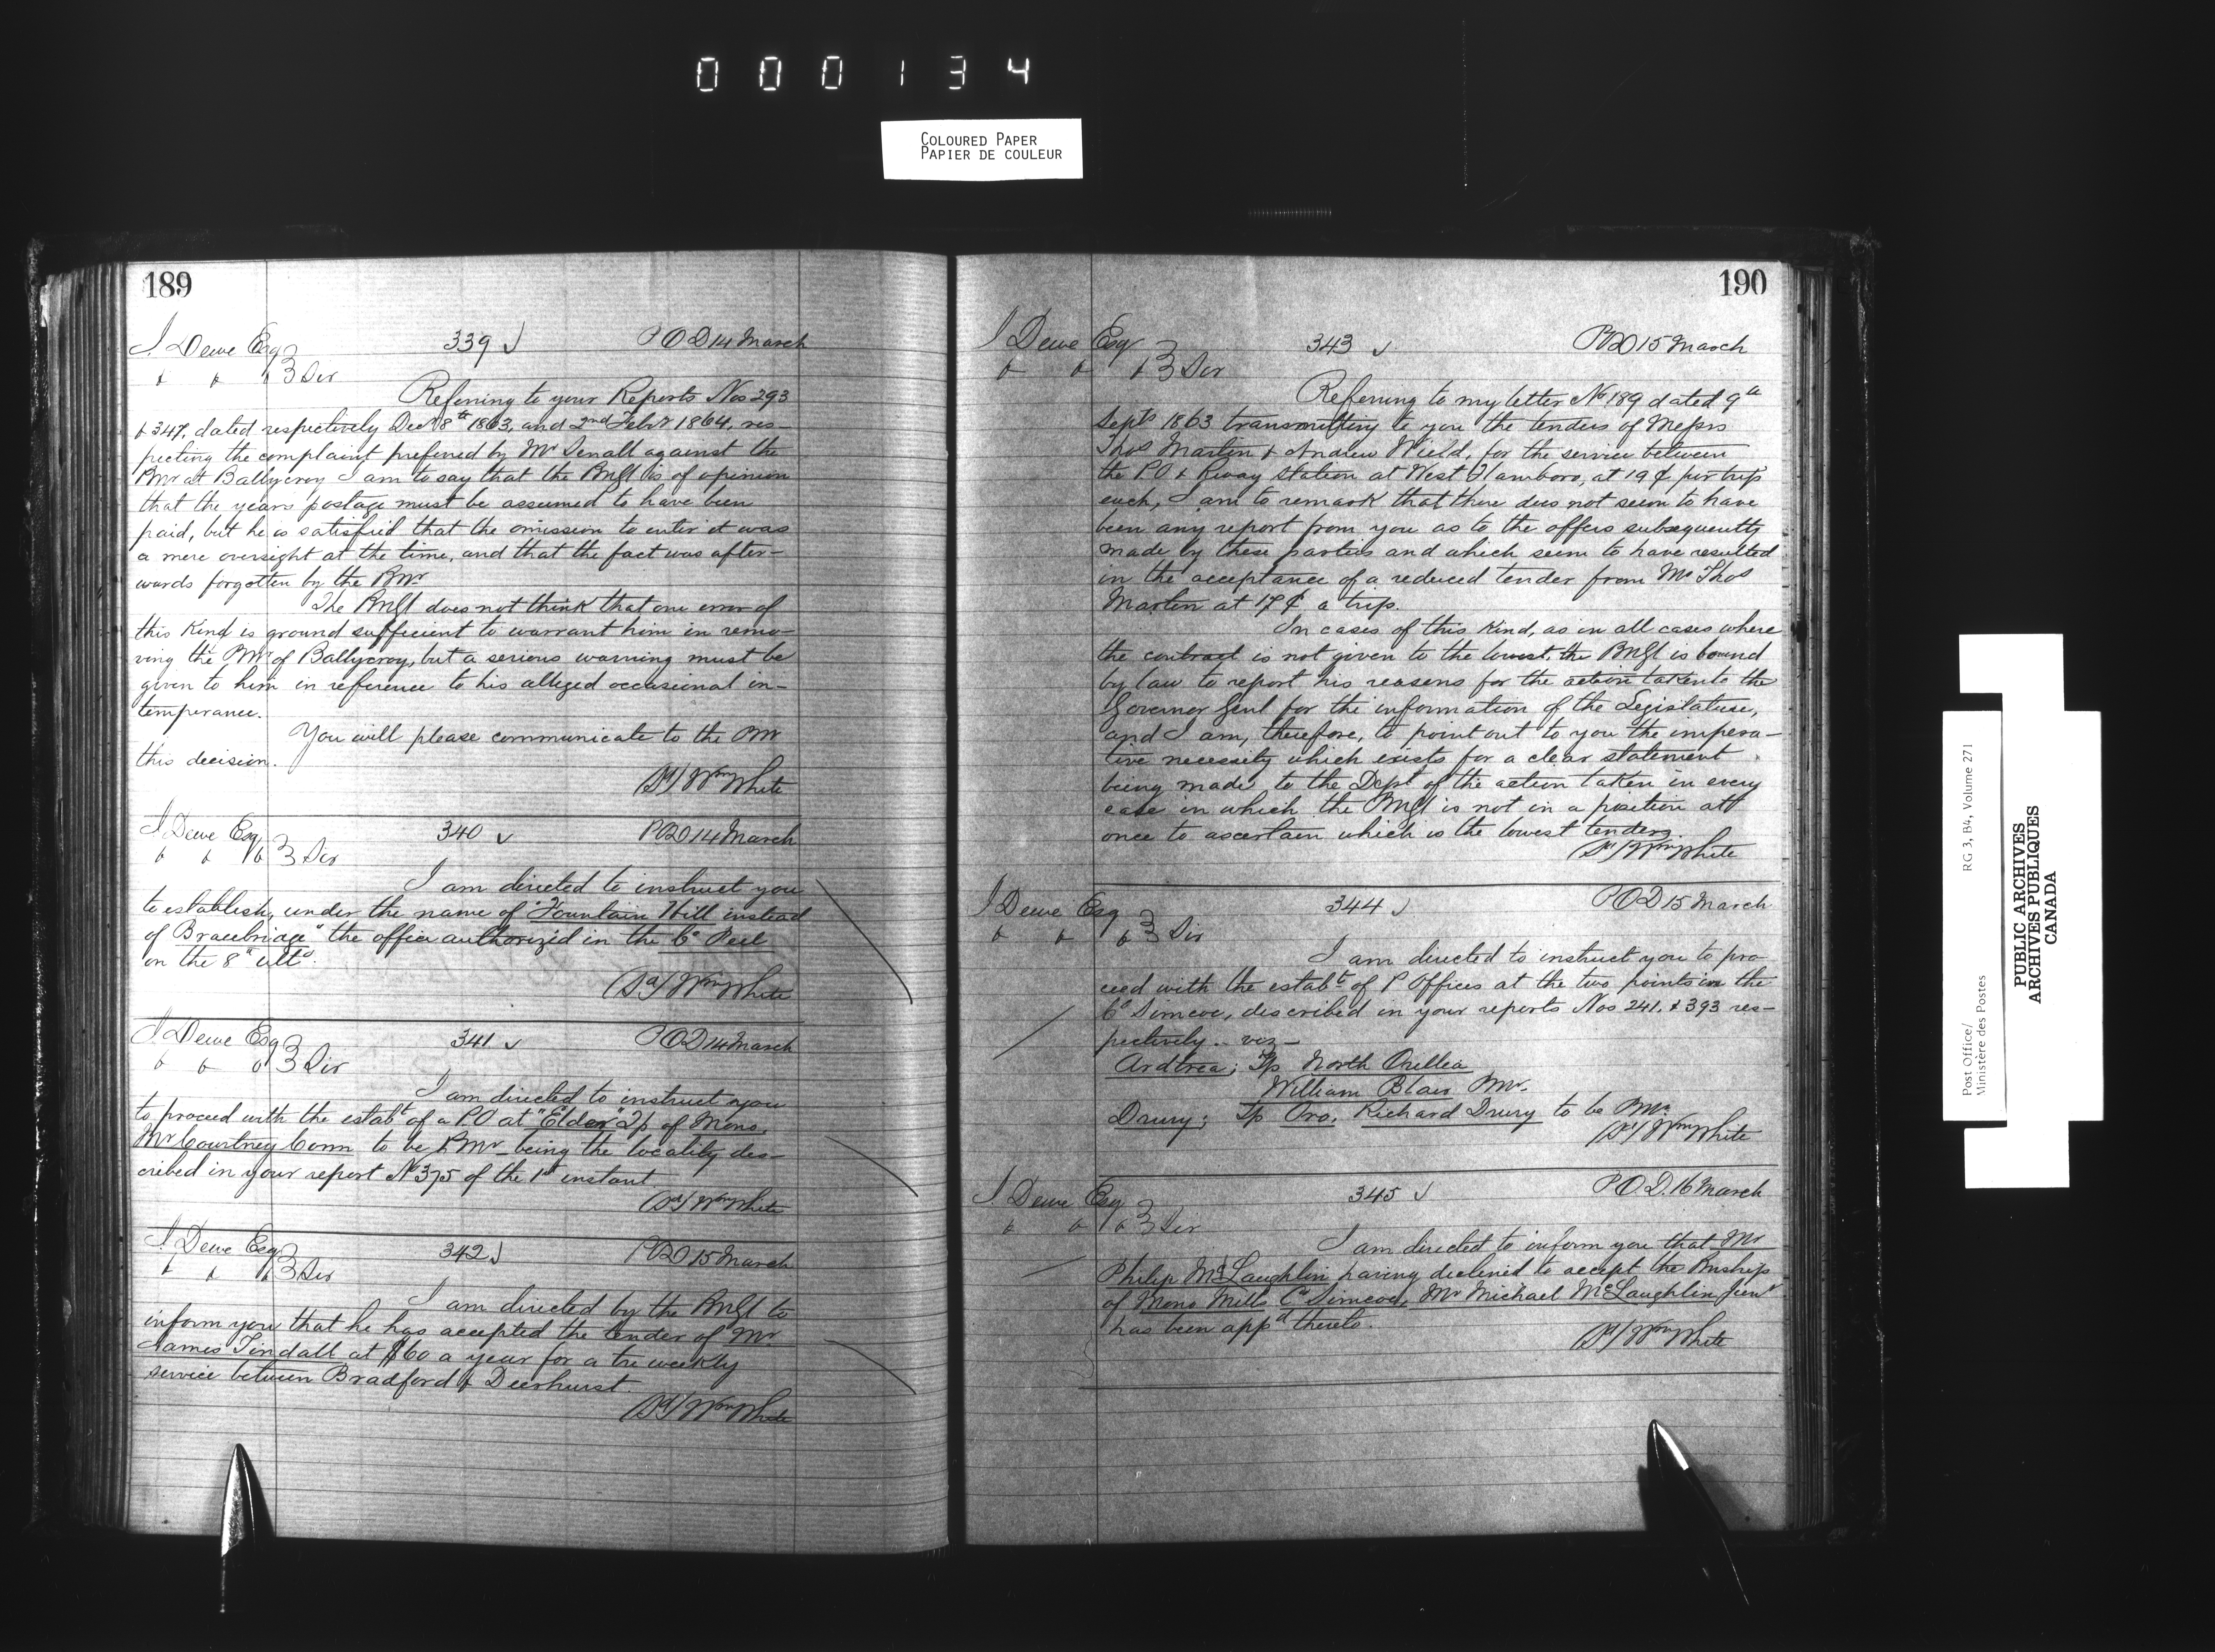 000134
COLOURED PAPER
PAPIER DE COULEUR
189
J. Dewe Esq 339 P O D 14 March
& & & 3 Div
Referring to your Reports Nos 293
& 347, dated respectively Decr 8th 1863, and 2nd Febr 1864, res-
pecting the complaint preferred by Mr against the
Pmr at Ballycroy I am to say that the PMGl is of opinion
that the years postage must be assumed to have been
paid, but he is satisfied that the omission to enter it was
a mere oversight at the time, and that the fact was after-
wards forgotten by the Pmr
The PMGl does not think that one error of
this kind is ground sufficient to warrant him in remo-
ving the PMr of Ballycroy, but a serious warning must be
given to him in reference to his alleged occasional in-
temperance.
You will please communicate to the Pmr
this decision.
(Sd) Wm White
J. Dewe Esq 340 P O D 14 March
& & & 3 Div
I am directed to instruct you
to establish, under the name of "Fountain Hill instead
of Bracebridge" the office authorized in the Co Peel
on the 8th ulto.
(Sd) Wm White
J. Dewe Esq 341 P O D 14 March
& & & 3 Div
I am directed to instruct you
to proceed with the estabt of a P.O at "Elder" Tp of Mono,
Mr Courtney Conn to be PMr - being the locality des-
cribed in your report No 375 of the 1st instant.
(Sd) Wm White
J. Dewe Esq 342 P O D 15 March
& & & 3 Div
I am directed by the PMGl to
inform you that he has accepted the tender of Mr
James Tindall at $60 a year for a tri weekly
service between Bradford & Deerhurst.
(Sd) Wm White
190
J Dewe Esq 343 P O D 15 March
& & & 3 Div
Referring to my letter No 189 dated 9th
Septr 1863 transmitting to you the tenders of Messrs
Thos Martin & Andrew Wield, for the service between
the P.O & Rway Station at West Flamboro, at 19 ¢ per trip
each, I am to remark that there does not seem to have
been any report from you as to the offers subsequently
made by these parties and which seem to have resulted
in the acceptance of a reduced tender from Mr Thos
Martin at 17 ¢ a trip.
In cases of this kind, as in all cases where
the contract is not given to the lowest, the PMGl is bound
by law to report his reasons for the action taken to the
Governor Genl for the information of the Legislature,
and I am, therefore, to point out to you the impera-
tive necessity which exists for a clear statement
being made to the Dept of the action taken in every
case in which the PMGl is not in a position at
once to ascertain which is the lowest tender.
(Sd) Wm White
J Dewe Esq 344 P O D 15 March
& & & 3 Div
I am directed to instruct you to pro
ceed with the estabt of P Offices at the two points in the
Co Simcoe, described in your reports Nos 241. & 393 res-
pectively .. viz -
Ardtrea; Tp North Orillia
William Blair PMr.
Drury; Tp Oro. Richard Drury to be PMr.
(Sd) Wm White
J. Dewe Esq 345 P O D. 16 March
& & & 3 Div
I am directed to inform you that Mr
Philip McLaughlin having declined to accept the Pmship
of Mono Mills Co Simcoe, Mr Michael McLaughlin Junr
has been appd thereto.
(Sd) Wm White
Post Office/
Ministère des Postes
RG 3, B4, Volume 271
PUBLIC ARCHIVES
ARCHIVES PUBLIQUES
CANADA